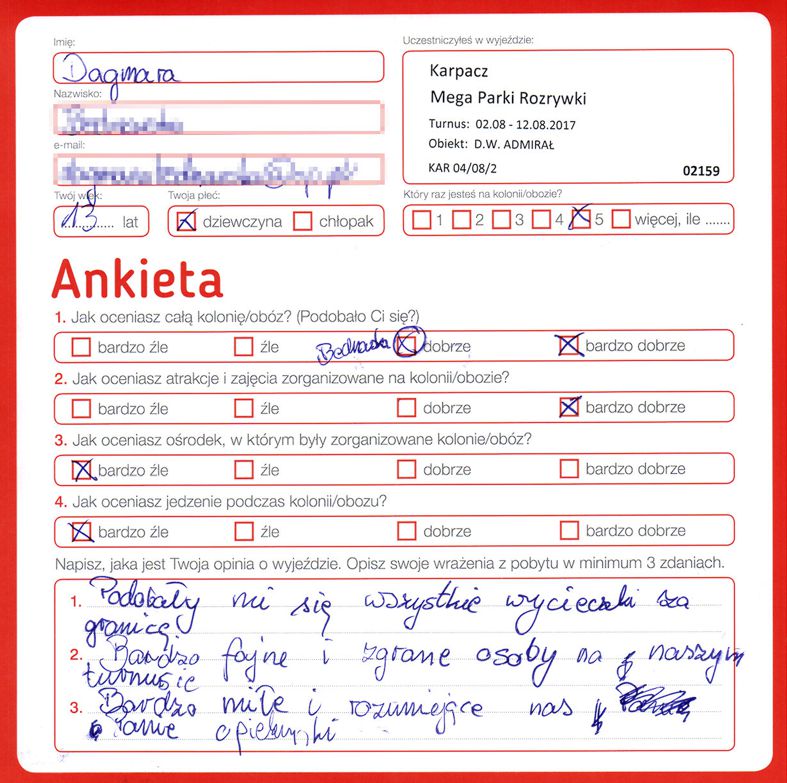 Imię:
Dagmara
Nazwisko:
e-mail:
Twój wiek:
13 lat
Twoja płeć:
dziewczyna chłopak
Uczestniczyłeś w wyjeździe:
Karpacz
Mega Parki Rozrywki
Turnus: 02.08 - 12.08.2017
Obiekt: D.W. ADMIRAŁ
KAR 04/08/2 02159
Który raz jesteś na kolonii/obozie?
1 2 3 4 5 więcej, ile .......
Ankieta
1. Jak oceniasz całą kolonię/obóz? (Podobało Ci się?)
bardzo źle źle dobrze bardzo dobrze
2. Jak oceniasz atrakcje i zajęcia zorganizowane na kolonii/obozie?
bardzo źle źle dobrze bardzo dobrze
3. Jak oceniasz ośrodek, w którym były zorganizowane kolonie/obóz?
bardzo źle źle dobrze bardzo dobrze
4. Jak oceniasz jedzenie podczas kolonii/obozu?
bardzo źle źle dobrze bardzo dobrze
Napisz, jaka jest Twoja opinia o wyjeździe. Opisz swoje wrażenia z pobytu w minimum 3 zdaniach.
1. Podobały mi się wszystkie wycieczki za
granicę
2. Bardzo fajne i zgrane osoby na naszym
turnusie
3. Bardzo miłe i rozumiejące nas
panie opiekunki